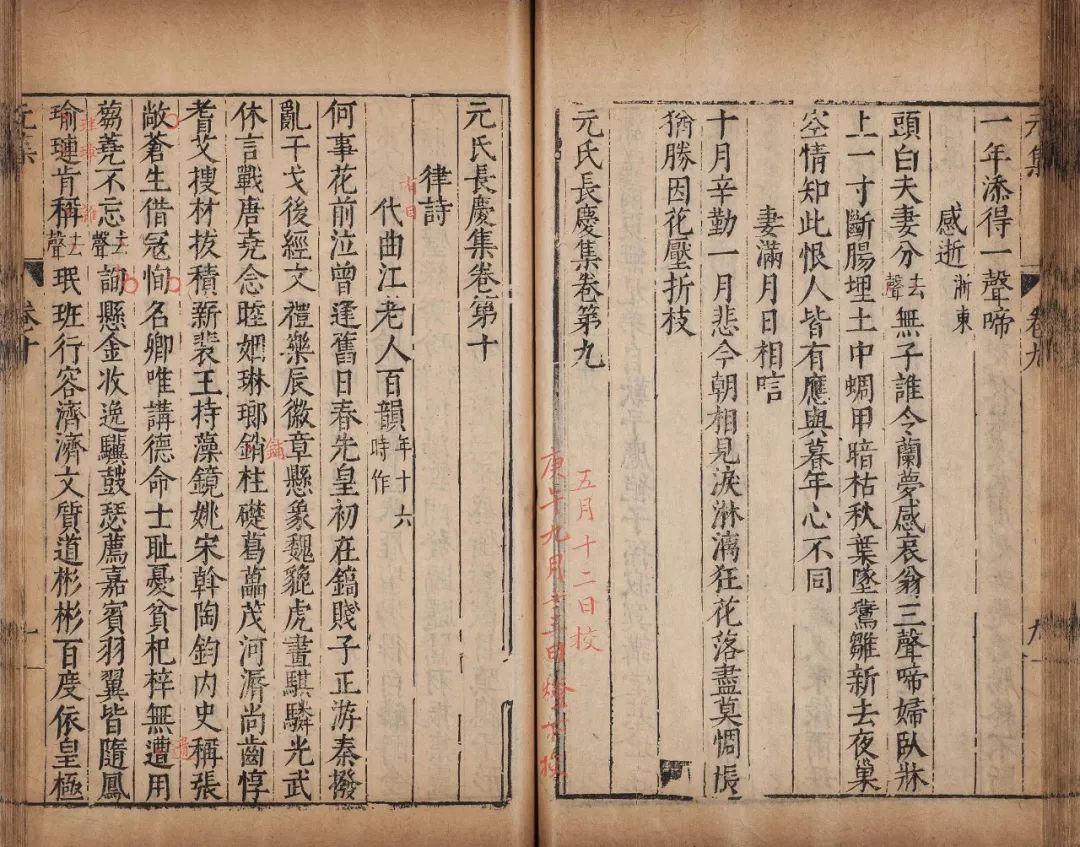 元集
卷九
九
一年添得一聲啼
感逝浙東
頭白夫妻分去聲無子誰令蘭夢感衰翁三聲啼婦臥牀
上一寸斷腸埋土中蜩甲暗枯秋葉墜鷰雛新去夜巢
空情知此恨人皆有應與暮年心不同
妻滿月日相唁
十月辛勤一月悲今朝相見淚淋漓狂花落盡莫惆悵
猶勝因花壓折枝
元氏長慶集卷第九
五月十二日校
庚午九月
元氏長慶集卷第十
律詩
代曲江老人百韻年十六時作
何事花前泣曾逢舊日春先皇初在鎬賤子正游秦撥
亂干戈後經文禮樂辰徽章懸象魏貔虎畫騏驎光武
休言戰唐堯念睦姻琳瑯銷柱礎葛藟茂河漘尚齒惇
耆艾搜材拔積新裴王持藻鏡姚宋斡陶鈞內史稱張
敞蒼生借寇恂名卿唯講德命士恥憂貧杞梓無遭用
芻蕘不忘去聲詢懸金收逸驥鼓瑟薦嘉賓羽翼皆隨鳳
瑜璉肯稱去聲珉班行容濟濟文質道彬彬百度依皇極
元集
卷十
一